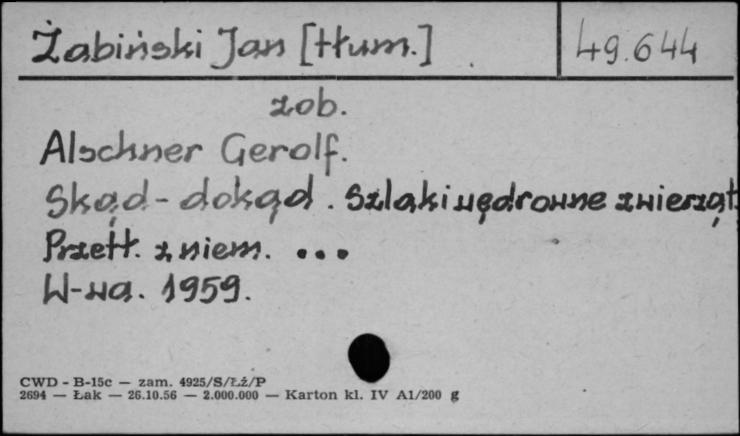 Żabiński Jan [tłum.]
49.644
zob.
Alschner Gerolf.
Skąd - dokąd. Szlaki wędrowne zwierząt.
Przetł. z niem. ...
W-wa. 1959.
CWD - B-15c — zam. 4925/S/Łż/P
2694 — Łak — 26.10.56 — 2.000.000 — Karton kl. IV A1/200 g